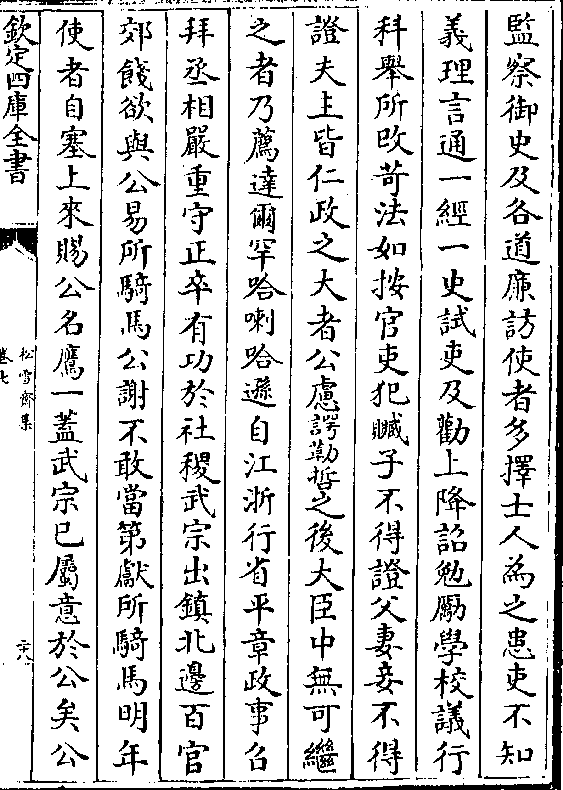 監察御史及各道廉訪使者多擇士人為之患吏不知
義理言通一經一史試吏及勸上降詔勉勵學校議行
科舉所改苛法如按官吏犯贓子不得證父妻妾不得
證夫主皆仁政之大者公慮諤勒哲之後大臣中無可繼
之者乃薦達爾罕哈喇哈遜自江浙行省平章政事召
拜丞相嚴重守正卒有功於社稷武宗出鎮北邊百官
郊餞欲與公易所騎馬公謝不敢當第獻所騎馬明年
使者自塞上來賜公名鷹一蓋武宗已屬意於公矣公
欽定四庫全書
松雪齋集
卷七
二十八